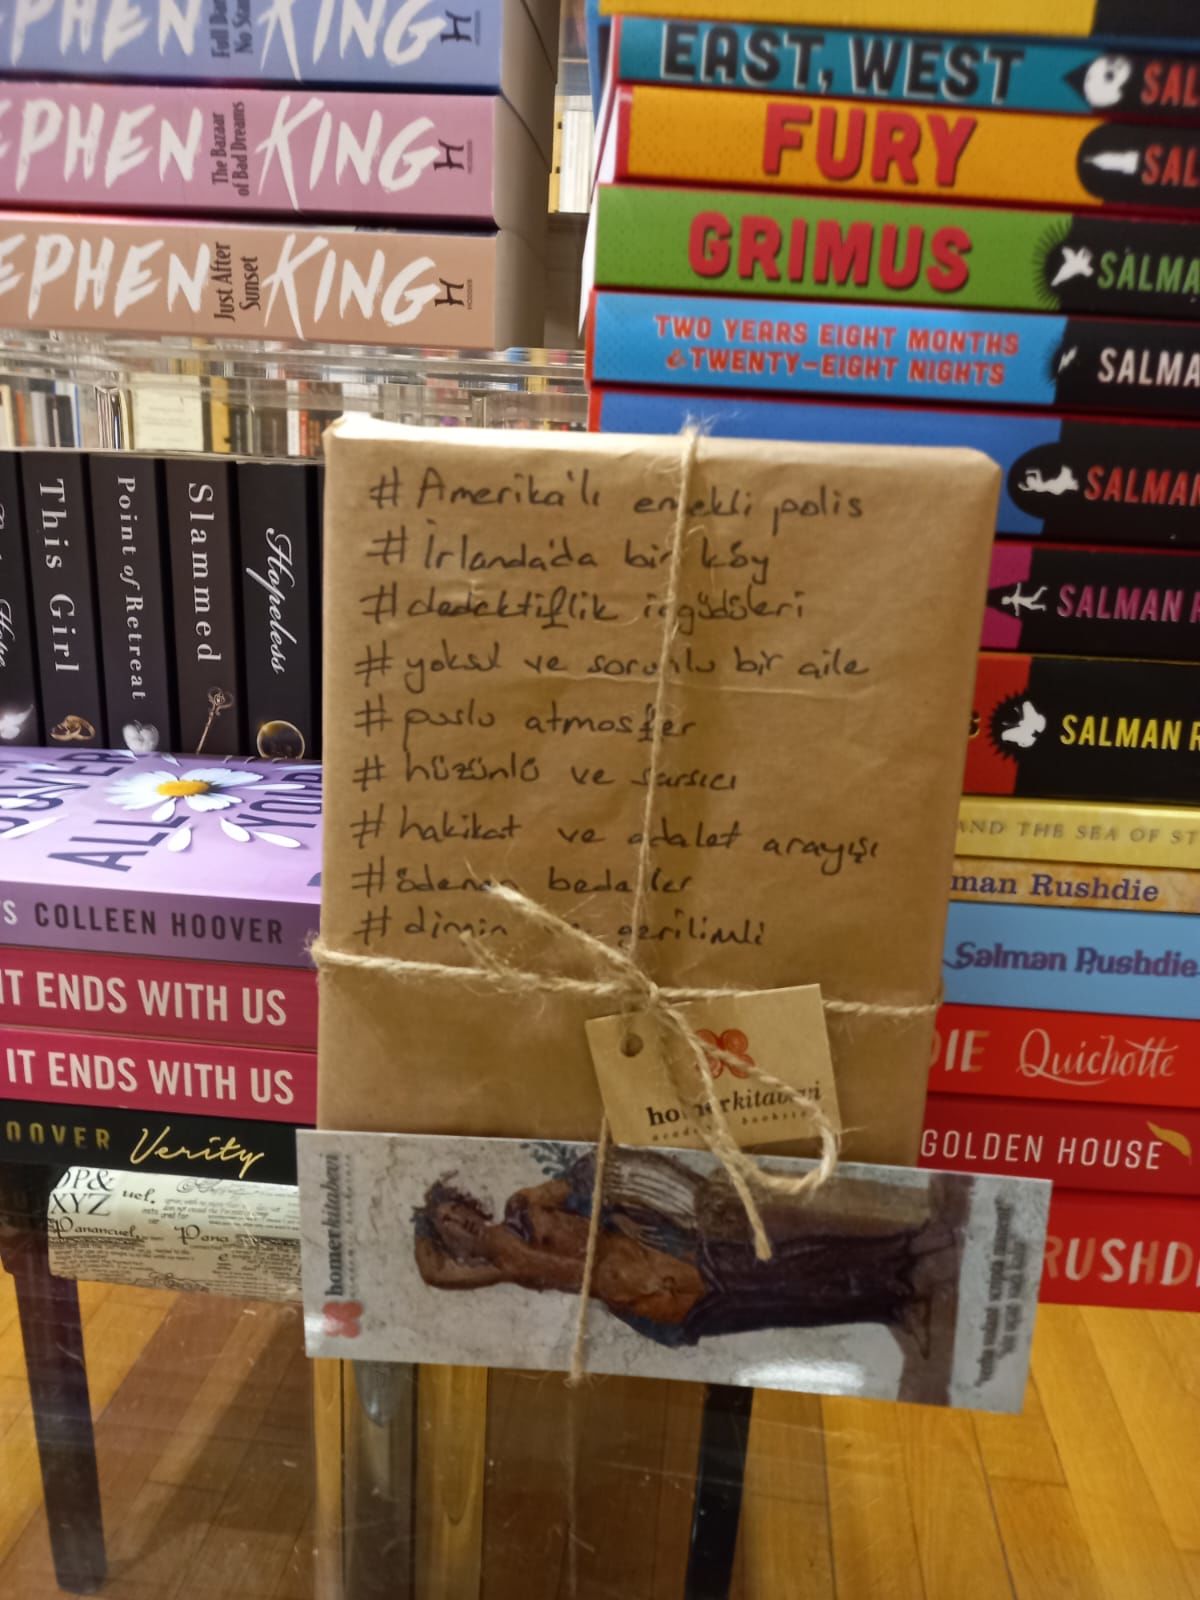 PHEN KING
Full Dark
No Stars
EPHEN KING
The Bazaar
of Bad Dreams
EPHEN KING
Just After
Sunset
EAST, WEST
SAL
FURY
SAL
GRIMUS
SALMA
TWO YEARS EIGHT MONTHS
& TWENTY-EIGHT NIGHTS
SALMA
SALMAN
SALMAN R
SALMAN R
AND THE SEA OF ST
man Rushdie
Salman Rushdie
DIE Quichotte
GOLDEN HOUSE
RUSHD
This Girl
Point of Retreat
Slammed
Hopeless
ALL YOUR
S COLLEEN HOOVER
IT ENDS WITH US
IT ENDS WITH US
OOVER Verity
# Amerika'lı emekli polis
# İrlanda'da bir köy
# dedektiflik içgüdüleri
# yoksul ve sorunlu bir aile
# puslu atmosfer
# hüzünlü ve sarsıcı
# hakikat ve adalet arayışı
# ödenen bedeller
# dingin gerilimli
homerkitabevi
homerkitabevi